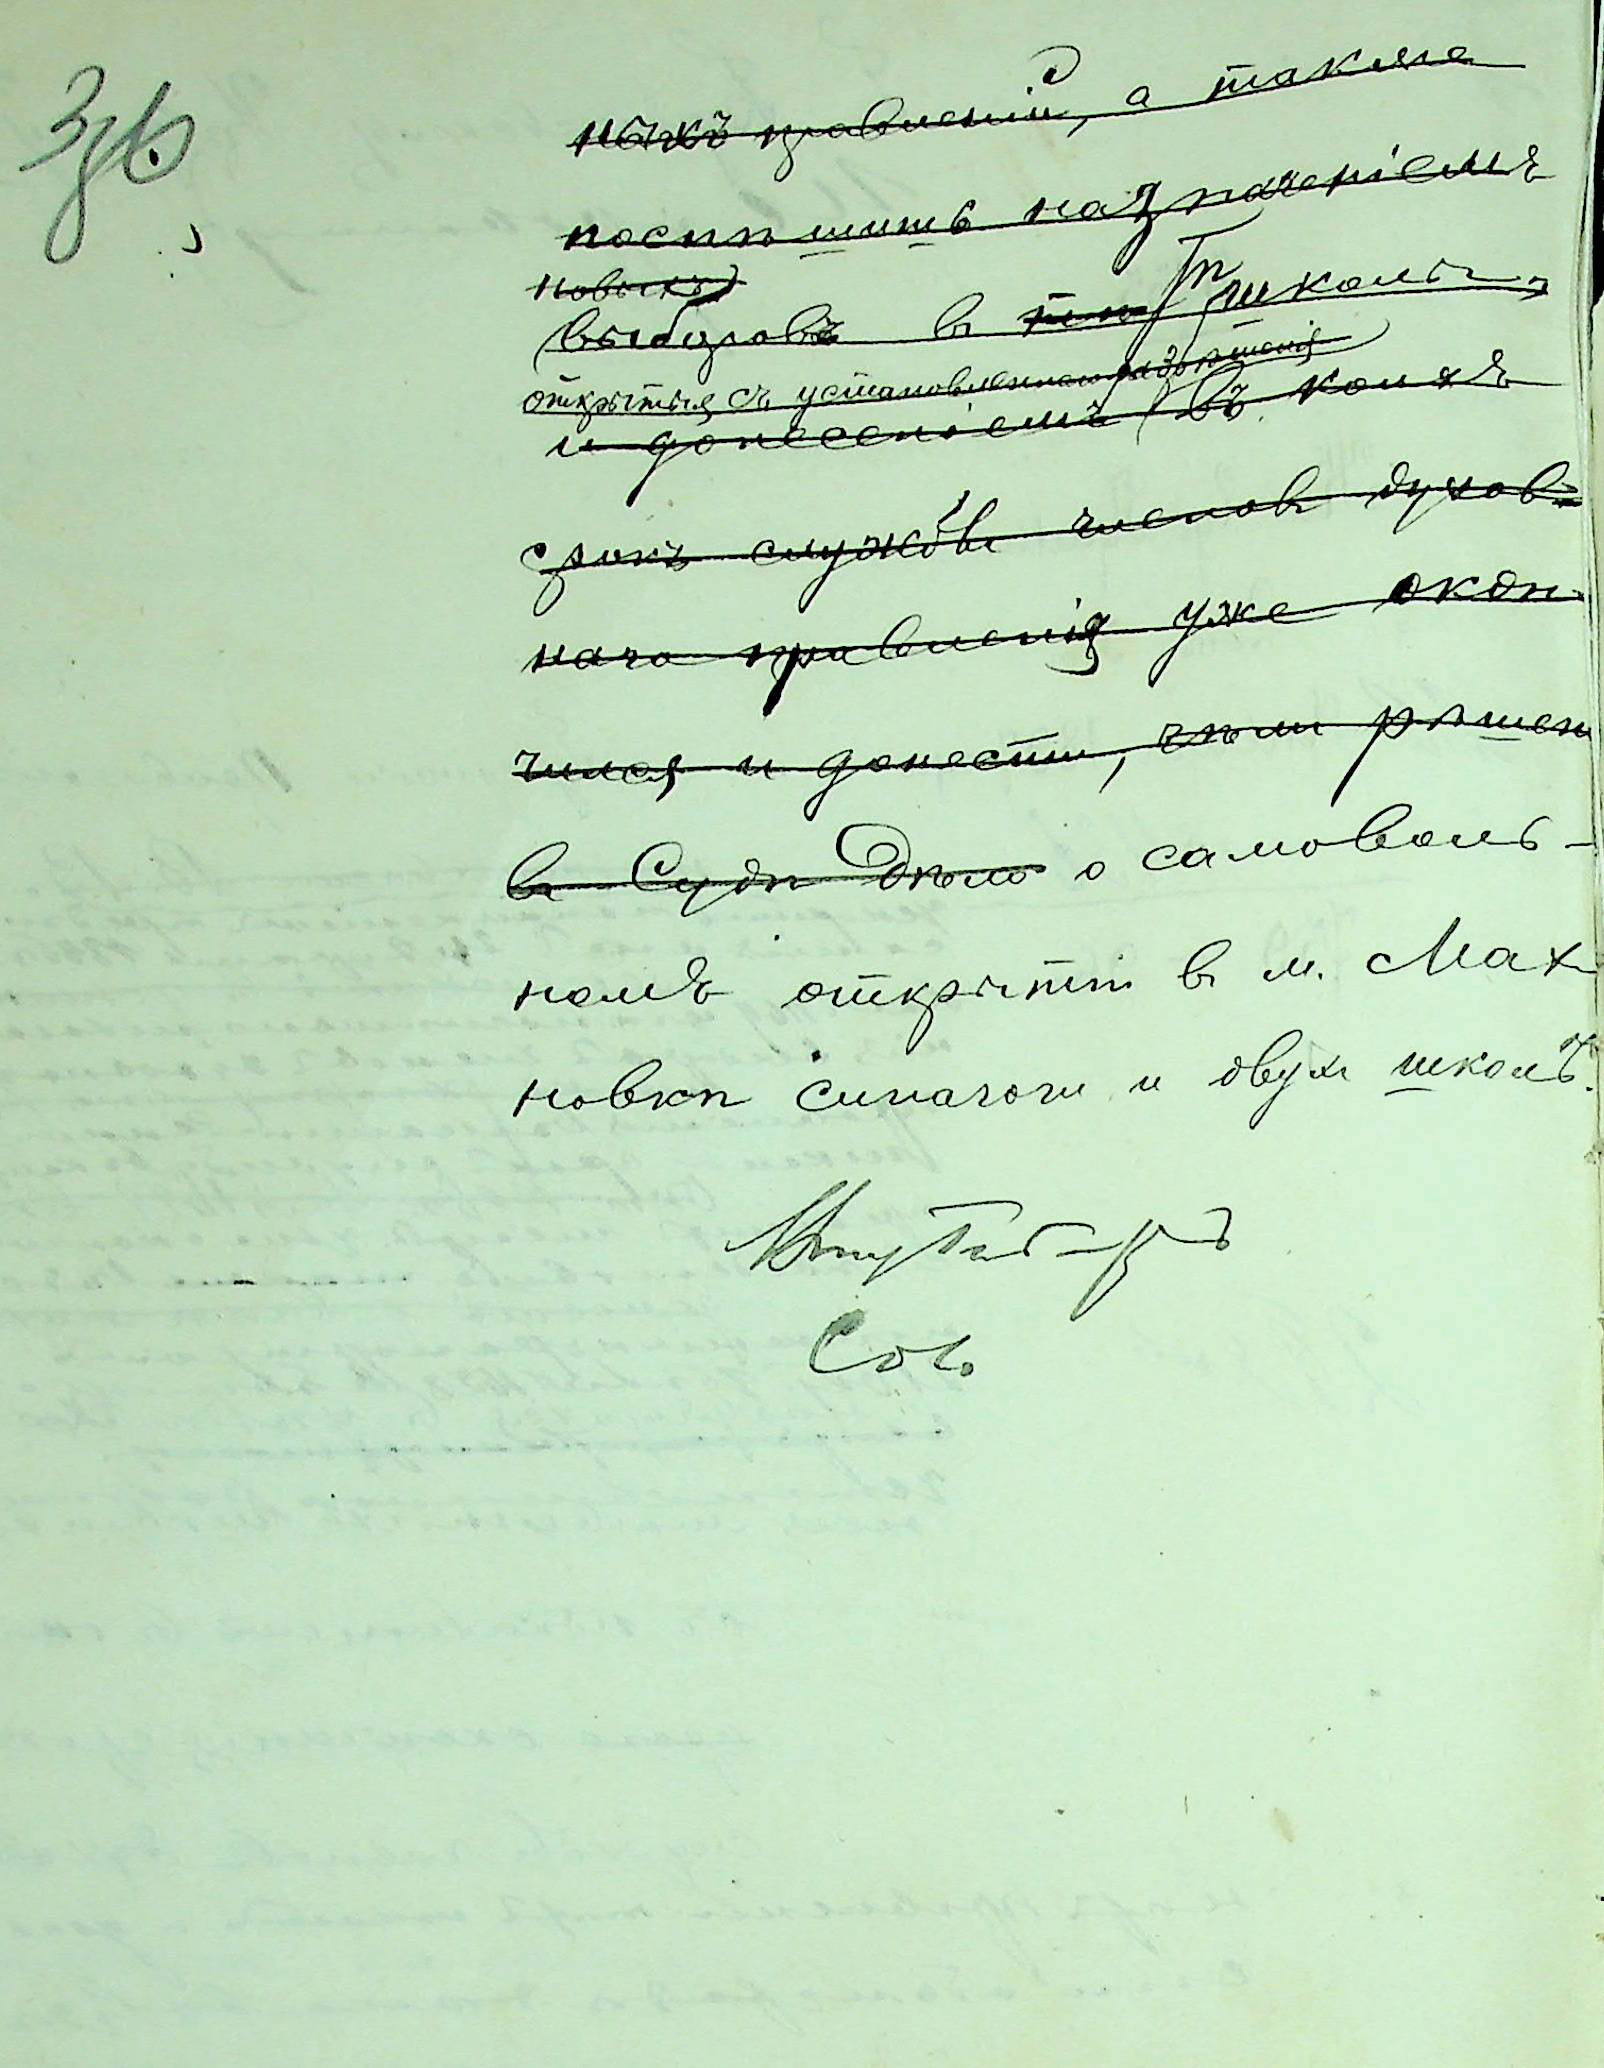 ныхъ правленій, а также
поспѣшить назначеніемъ
новыхъ
выборовъ въ тѣ школы,
открытыя съ установленнаго разрѣшенія
и донесеніемъ въ коихъ
срокъ службы членовъ духов-
наго правленія уже окон-
чился и донести, чѣмъ рѣшен
въ Судѣ дѣло о самоволь-
номъ открытіи въ м. Мах-
новкѣ синагоги и двухъ школъ.
Сов.